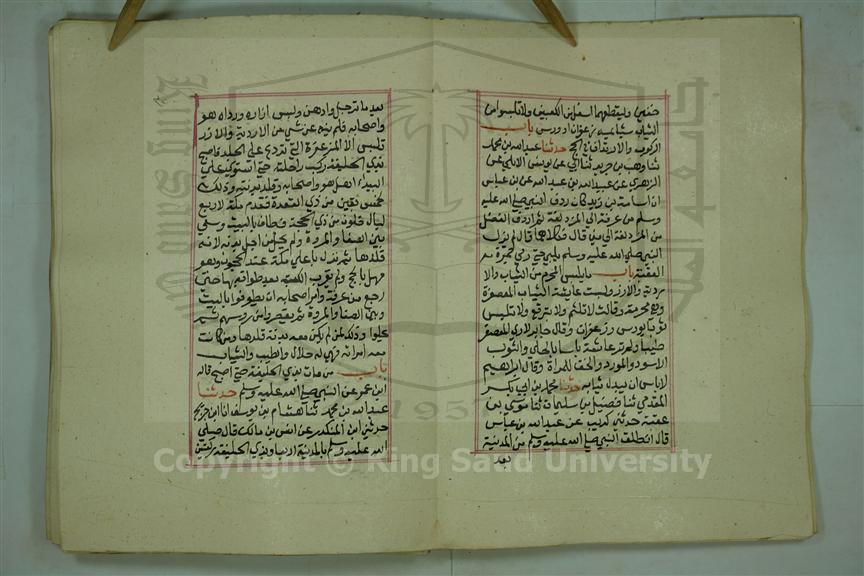 خفين وليقطعهما اسفل من الكعبين ولا تلبسوا من
الثياب شيئا مسه زعفران او ورس باب
الركوب والارتداف في الحج حدثنا عبدالله بن محمد
ثنا وهب بن جرير ثنا ابي عن يونس الايلي عن
الزهري عن عبيدالله بن عبدالله عن ابن عباس
ان اسامة بن زيد كان ردف النبي صلى الله عليه
وسلم من عرفة الى المزدلفة ثم اردف الفضل
من المزدلفة الى منى قال فكلاهما قال لم يزل
النبي صلى الله عليه وسلم يلبي حتى رمى جمرة
العقبة باب ما يلبس المحرم من الثياب والا
ردية والازر ولبست عايشة الثياب المعصفرة
وهي محرمة وقالت لا تلثم ولا تتبرقع ولا تلبس
ثوبا بورس وزعفران وقال جابر لا ارى المعصفر
طيبا ولم تر عائشة باسا بالحلي والثوب
الاسود والمورد والخف للمراة وقال ابراهيم
لا باس ان يبدل ثيابه حدثنا محمد بن ابي بكر
المقدمي ثنا فضيل بن سليمان ثنا موسى بن
عقبة حدثني كريب عن عبدالله بن عباس
قال انطلق النبي صلى الله عليه وسلم من المدينة
بعد
بعد ما ترجل وادهن ولبس ازاره ورداه هو
واصحابه فلم ينه عن شي من الاردية والازر
تلبس الا المزعفرة التي تردع على الجلد فاصبح
بذي الحليفة ركب راحلته حتى استوى على
البيداء اهل هو واصحابه وقلد بدنته وذلك
لخمس بقين من ذي القعدة فقدم مكة لاربع
ليال خلون من ذي الحجة فطاف بالبيت وسعى
بين الصفا والمروة ولم يحل من اجل بدنه لانه
قلدها ثم نزل باعلى مكة عند الحجون وهو
مهل بالحج ولم يقرب الكعبة بعد طوافه بها حتى
رجع من عرفة وامر اصحابه ان يطوفوا بالبيت
وبين الصفا والمروة ثم يقصروا من روسهم ثم
يحلوا وذلك لمن لم يكن معه بدنة قلدها ومن كانت
معه امراته فهي له حلال والطيب والثياب
باب من بات بذي الحليفة حتى اصبح قاله
ابن عمر عن النبي صلى الله عليه وسلم حدثنا
عبدالله بن محمد ثنا هشام بن يوسف انا ابن جريج
حدثني ابن المنكدر عن انس بن مالك قال صلى
الله عليه وسلم بالمدينة اربعا وبذي الحليفة ركعتين
Copyright © King Saud University
King Saud University
جامعة الملك سعود
1957